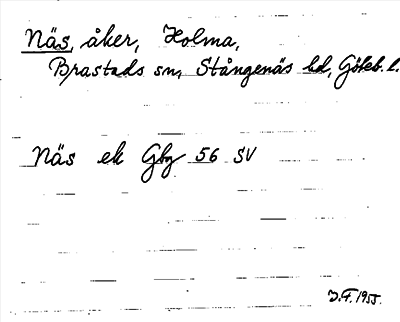 Näs, åker, Holma,
Brastads sn, Stångenäs hd, Göteb. l.
Näs ek Gbg 56 SV
J.F. 1955.